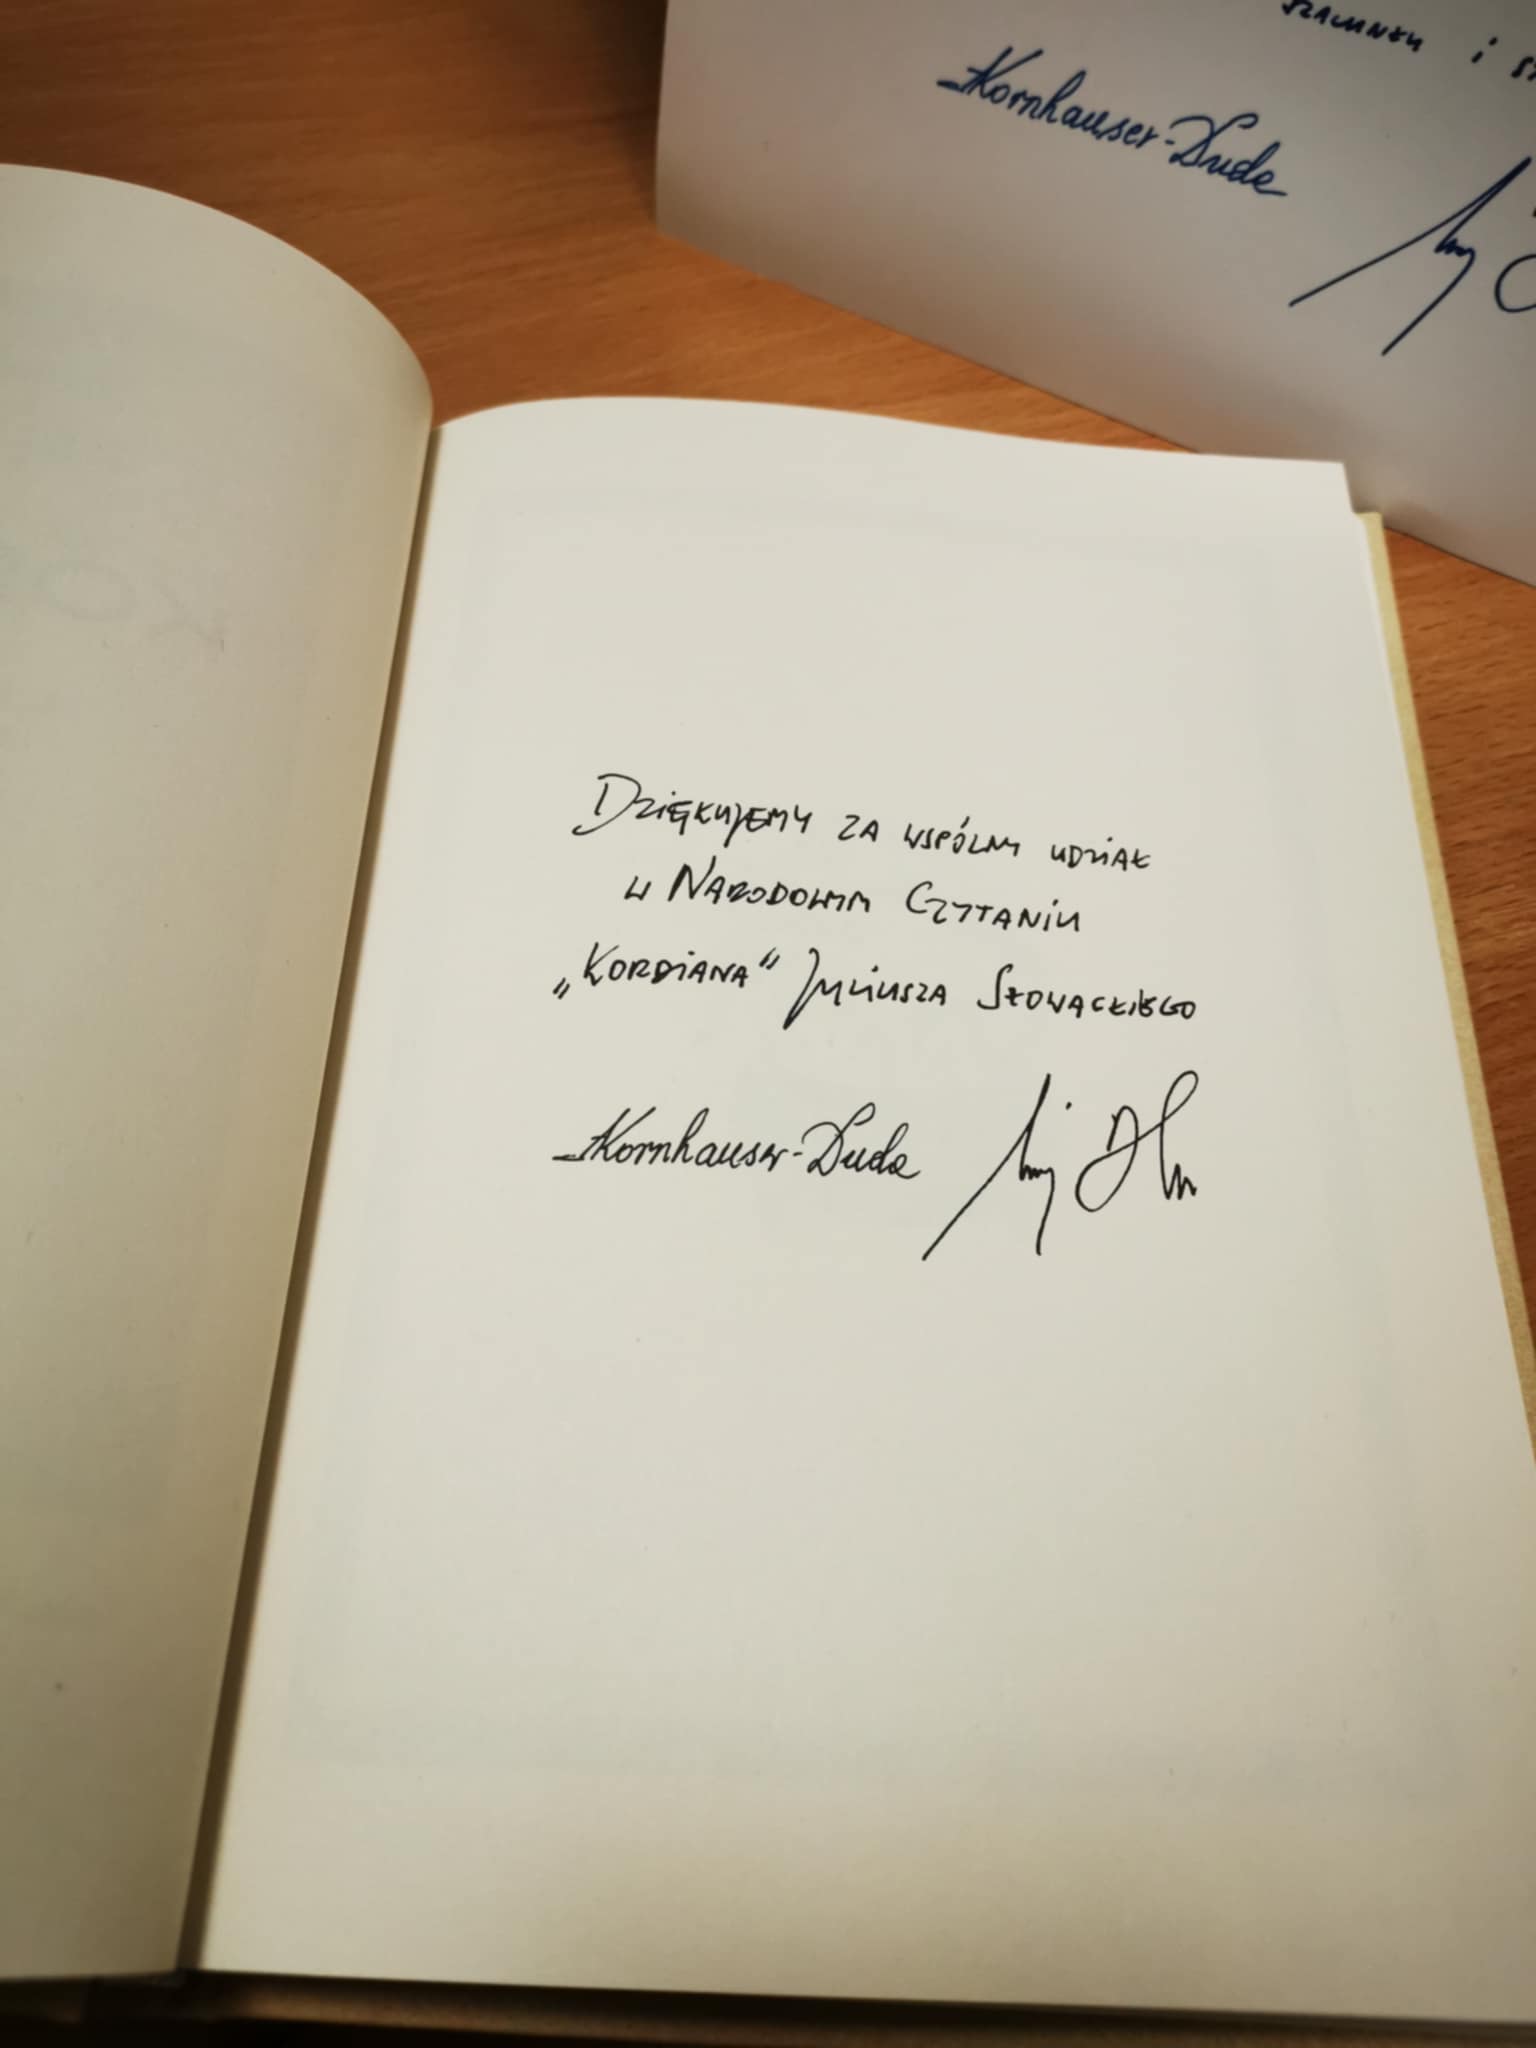 szacunku i
Kornhauser-Duda
Dziękujemy za wspólny udział
w Narodowym Czytaniu
„Kordiana” Juliusza Słowackiego
AKornhauser-Duda